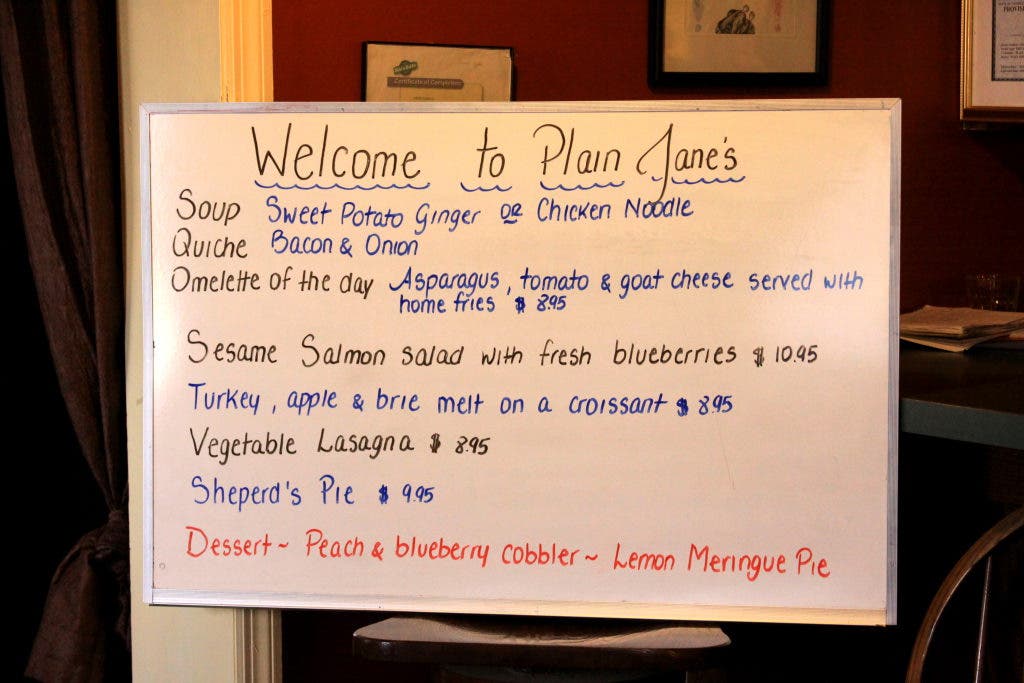 Certificate of Completion
Welcome to Plain Jane's
Soup Sweet Potato Ginger or Chicken Noodle
Quiche Bacon & Onion
Omelette of the day Asparagus, tomato & goat cheese served with
home fries $ 8.95
Sesame Salmon salad with fresh blueberries $ 10.95
Turkey, apple & brie melt on a croissant $ 8.95
Vegetable Lasagna $ 8.95
Sheperd's Pie $ 9.95
Dessert ~ Peach & blueberry cobbler ~ Lemon Meringue Pie